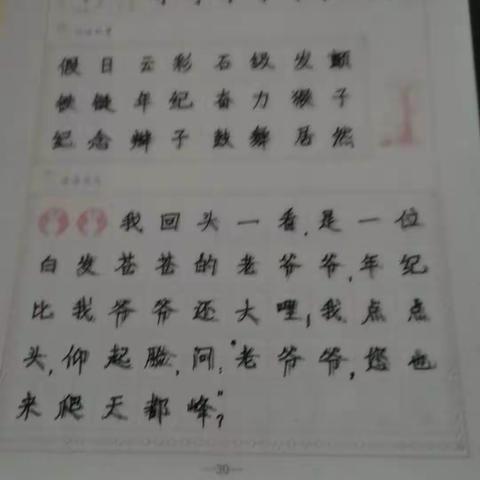 假日云彩石级发颤
铁链年纪奋力猴子
纪念辫子鼓舞居然
我回头一看,是一位
白发苍苍的老爷爷,年纪
比我爷爷还大哩,我点点
头,仰起脸,问:"老爷爷,您也
来爬天都峰"?
—30—